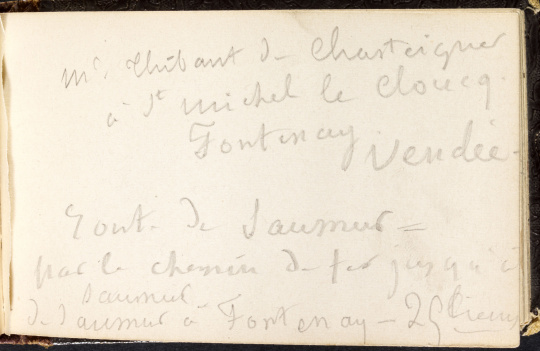 Mr. Thibaut de Chasteigner
à St michel le Cloucq.
Fontenay Vendée.
Route de Saumur =
par le chemin de fer jusqu'à
Saumur
de Saumur à Fontenay – 25 lieues